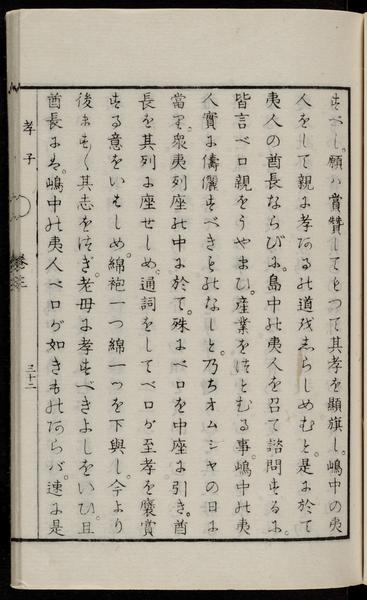 すべし。願ハ賞賛してもつて其孝を顕旗し。嶋中の夷
人をして親に孝あるの道をしらしめむと。是に於て
夷人の酋長ならびに。島中の夷人を召て諮問するに。
皆言ベロ親をうやまひ。産業をつとむる事。嶋中の夷
人實に儔儷すべきものなしと。乃ちオムシヤの日に
當り。衆夷列座の中に於て。殊にベロを中座に引き。酋
長を其列に座せしめ。通詞をしてベロが至孝を襃賞
する意をいはしめ。綿袍一つ綿一つを下與し。今より
後にも其志をつぎ。老母に孝すべきよしをいひ。且
酋長には。嶋中の夷人ベロが如きものあらバ。速に是
孝子
三十二